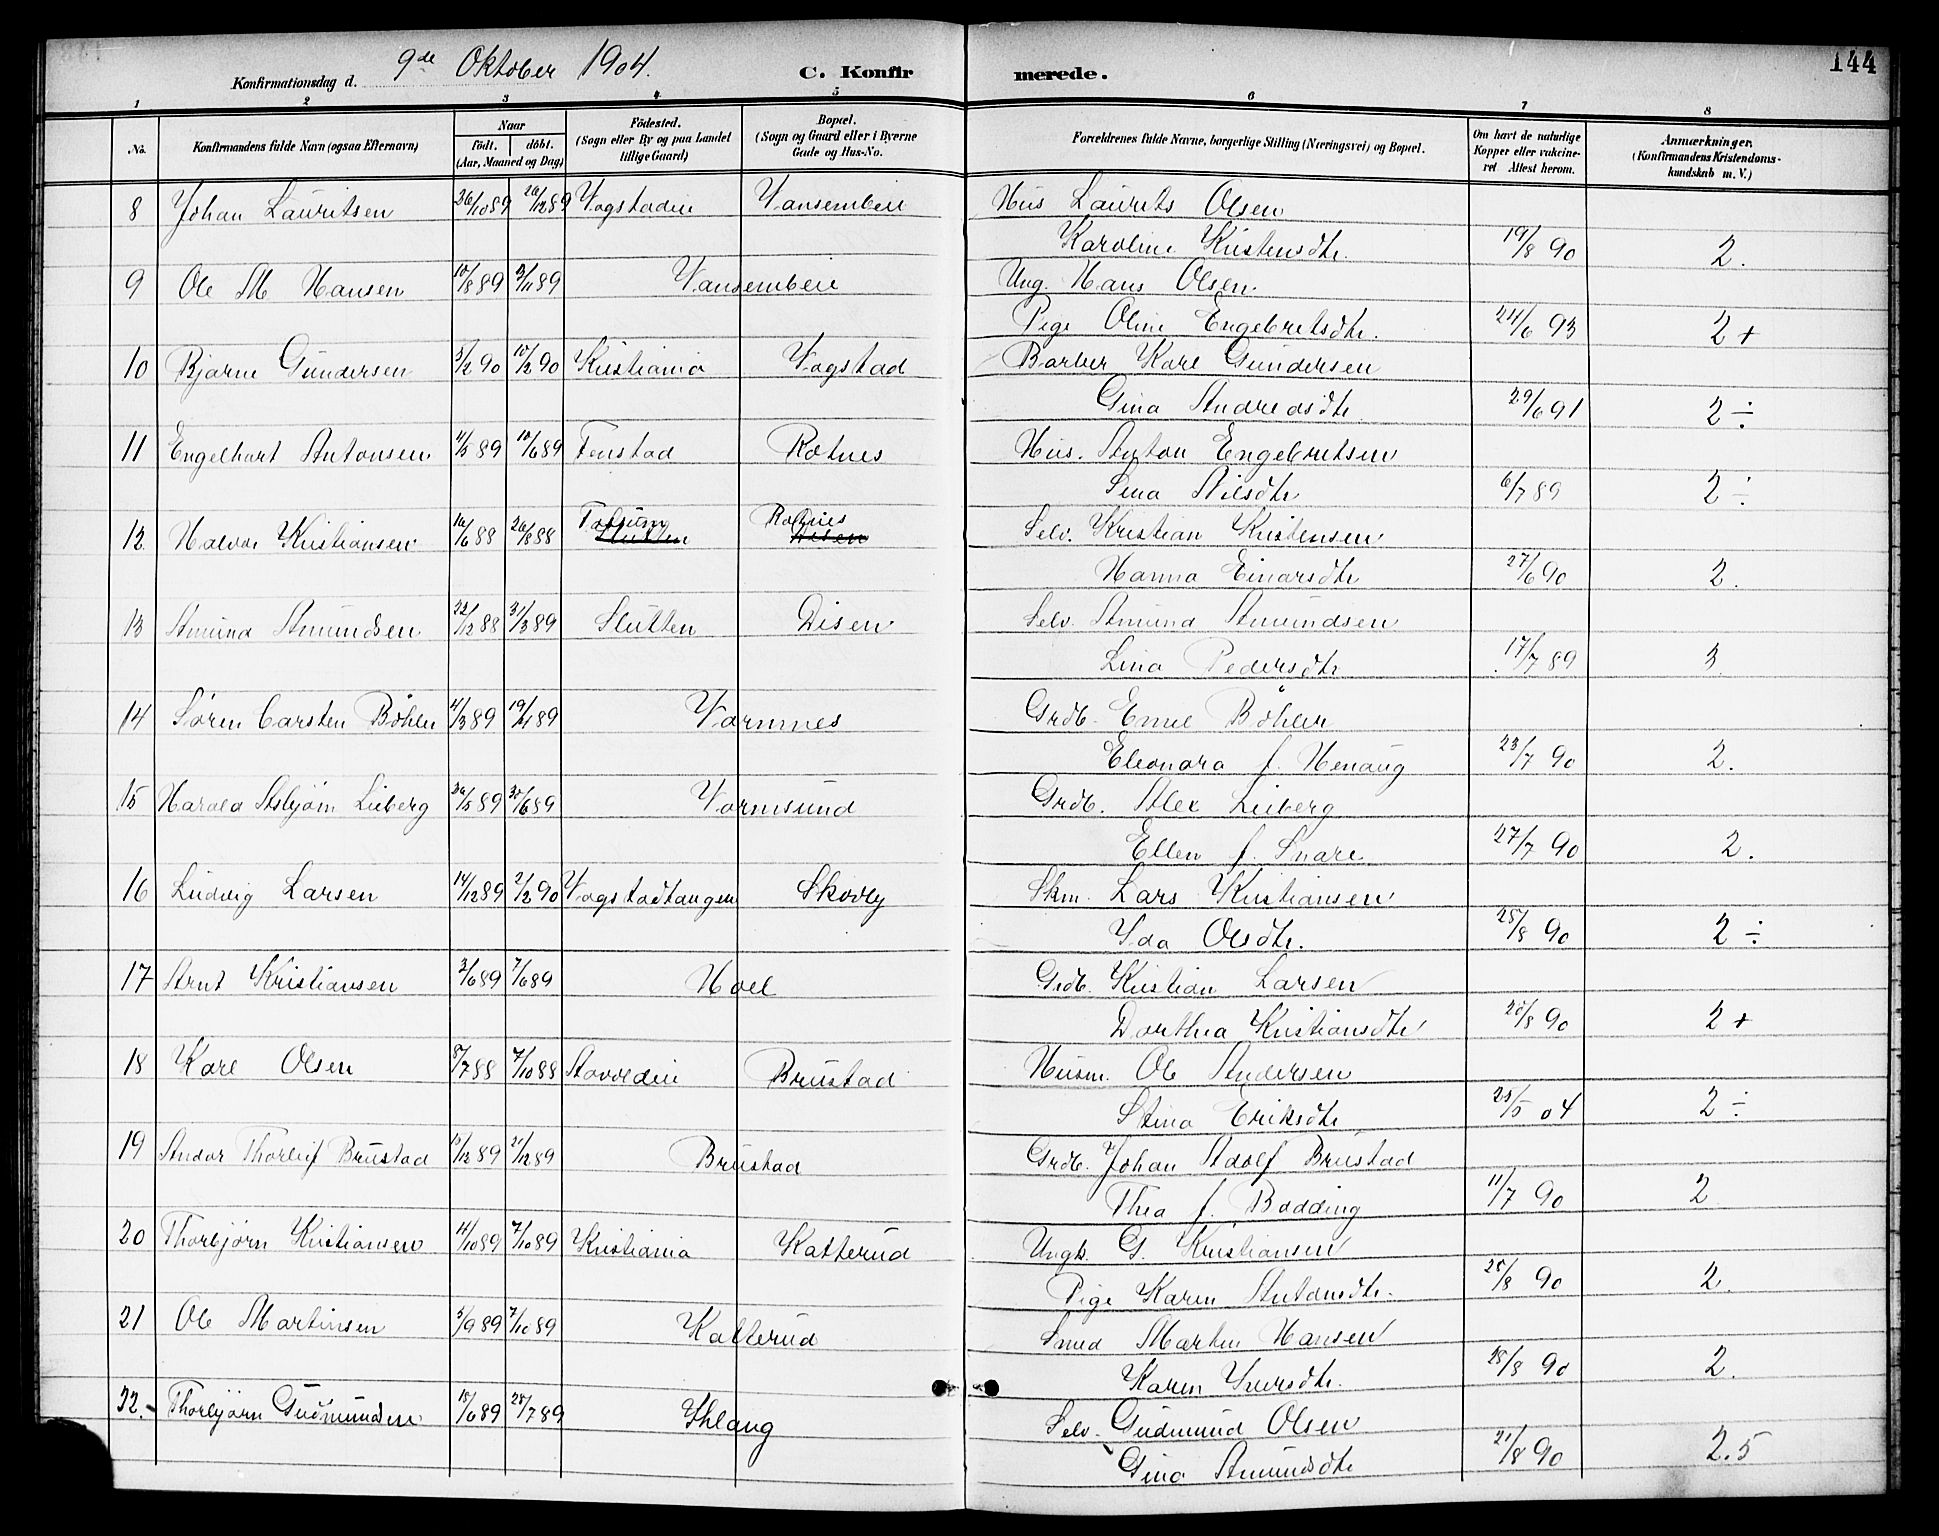 144
Konfirmationsdag d. 9de Oktober 1904. C. Konfirmerede.
1 2 3 4 5 6 7 8
No. Konfirmandens fulde Navn (ogsaa Efternavn) Naar født. døbt. (Aar, Maaned og Dag) Fødested. (Sogn eller By og paa Landet tillige Gaard) Bopæl. (Sogn og Gaard eller i Byerne Gade og Hus-No. Forældrenes fulde Navne, borgerlige Stilling (Næringsvei) og Bopæl. Om havt de naturlige Kopper eller vakcineret. Attest herom. Anmærkninger. (Konfirmandens Kristendomskundskab m. V.)
8 Johan Lauritsen 26/10 89 26/12 89 Vogstadeie Vansembeie Hus Laurits Olsen
Karoline Kristensdtr. 19/8 90 2.
9 Ole M Hansen 10/8 89 3/11 89 Vansembeie Ung. Hans Olsen.
Pige Oline Engebretsdtr. 24/6 93 2+
10 Bjarne Gundersen 3/2 90 10/2 90 Kristiania Vogstad Barber Karl Gundersen
Gina Andreasdtr. 29/6 91 2÷
11 Engelhart Antonsen. 11/5 89 10/6 89 Fenstad Rotnes Hus. Anton Engebretsen
Lina Nilsdtr. 6/7 89 2÷
12 Halvor Kristiansen 16/6 88 26/8 88 Slutten Rotnes Selv. Kristian Kristensen
Hanna Einarsdtr 27/6 90 2.
13 Amund Amundsen 22/12 88 31/3 89 Slutten Disen Selv. Amund Amundsen
Lina Pedersdtr 17/7 89 3
14 Søren Carsten Bøhler 4/3 89 19/4 89 Vormnes Grdb. Emil Bøhler
Eleonora f. Henaug 23/7 90 2.
15 Harald Asbjørn Lieberg 26/5 89 30/6 89 Vormsund Grdb. Alex Lieberg
Ellen f. Snare 27/7 90 2.
16 Ludvig Larsen 14/12 89 2/2 90 Vogstadtangen Skovly Skm. Lars Kristiansen
Ida Olsdtr. 25/8 90 2÷
17 Arnt Kristiansen 3/6 89 7/6 89 Hoel Grdb. Kristian Larsen
Dorthea Kristiansdtr 28/8 90 2+
18 Karl Olsen 8/7 88 7/10 88 Brustad Husm. Ole Andersen
Stina Eriksdtr 25/5 04 2÷
19 Andor Thorleif Brustad 15/12 89 21/12 89 Brustad Grdb. Johan Adolf Brustad
Thea f. Bodding 11/7 90 2
20 Thorbjørn Kristiansen 4/10 89 7/10 89 Kristiania Katterud Ungk. G. Kristiansen
Pige Karen Antonsdtr. 28/8 90 2.
21 Ole Martinsen 3/9 89 7/10 89 Katterud Smed Martin Hansen
Karen Iversdtr. 28/8 90 2.
22.- Thorbjørn Gudmundsen 15/6 89 28/7 89 Ihlang Selv. Gudmund Olsen
Gina Amundsdtr 21/8 90 2.5